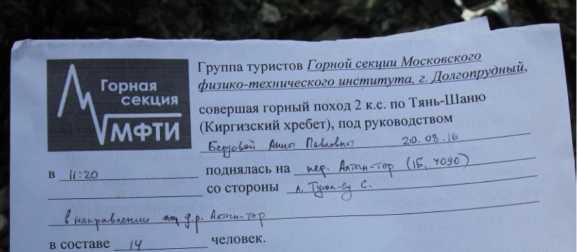 Горная
секция
МФТИ
Группа туристов Горной секции Московского
физико-технического института, г. Долгопрудный,
совершая горный поход 2 к.с. по Тянь-Шаню
(Киргизский хребет), под руководством
Анны Павловны 20.08.16
в 11:20 поднялась на пер. Актюз-тор (1Б, 4090)
со стороны л. С.
в направлении д.р.
в составе 14 человек.